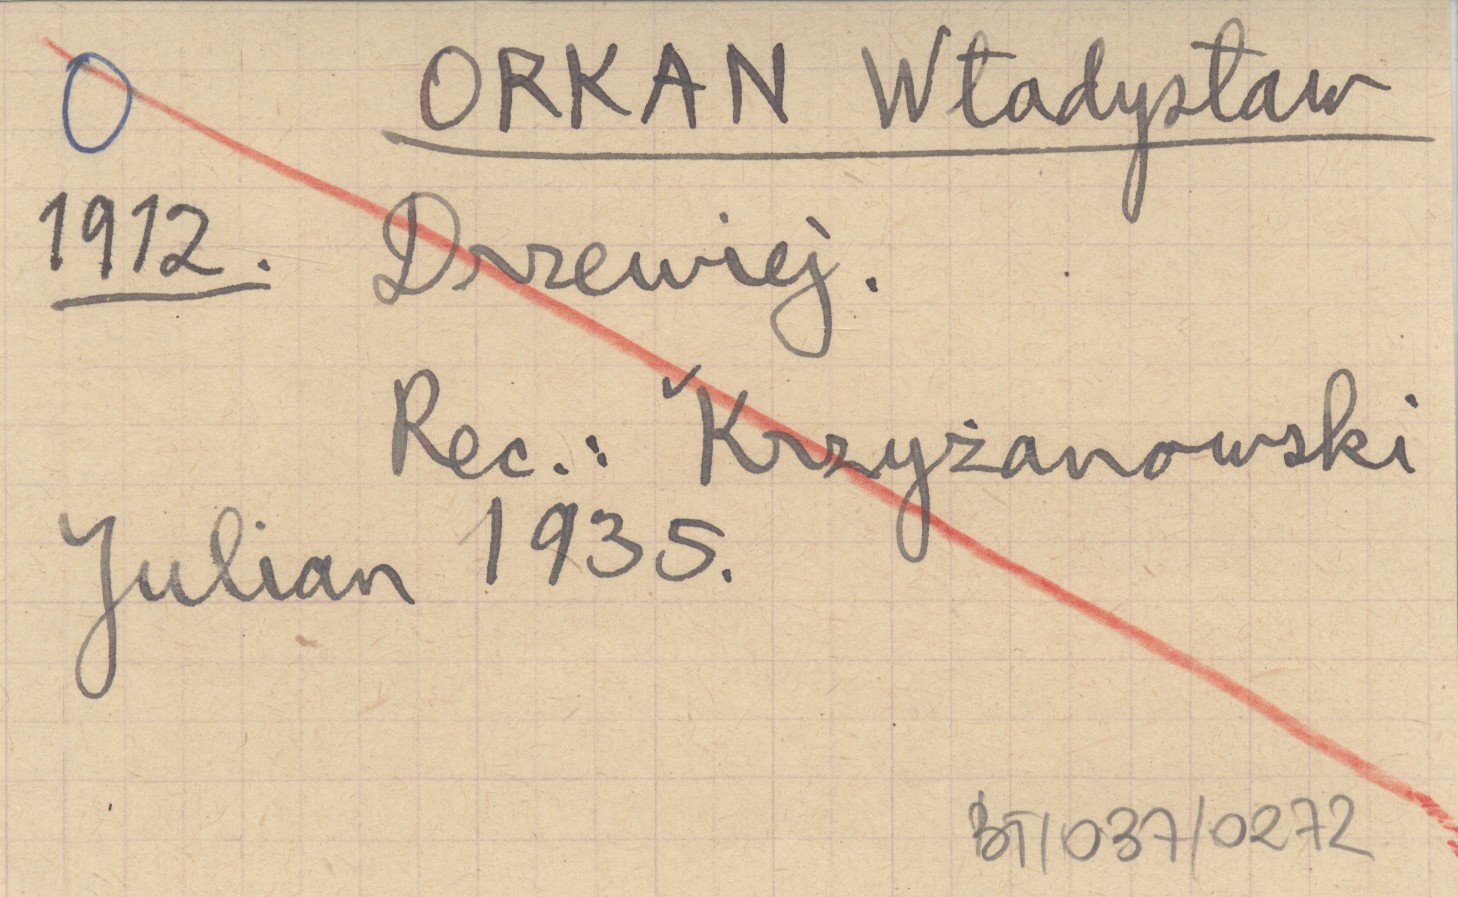 O ORKAN Władysław
1912. Drzewiej.
Rec.: Krzyżanowski
Julian 1935.
BT/037/0272